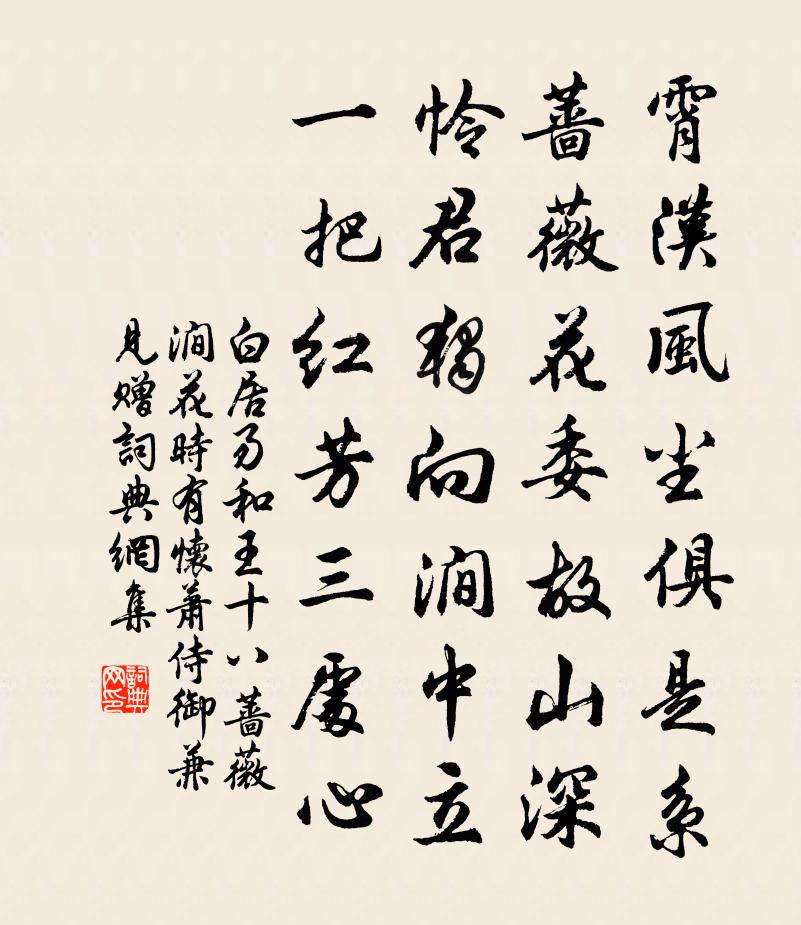 霄漢風塵俱是系
薔薇花委故山深
怜君獨向澗中立
一把红芳三處心
白居易和王十八薔薇
澗花時有懷蕭侍御兼
見贈詞典網集
詞典網印